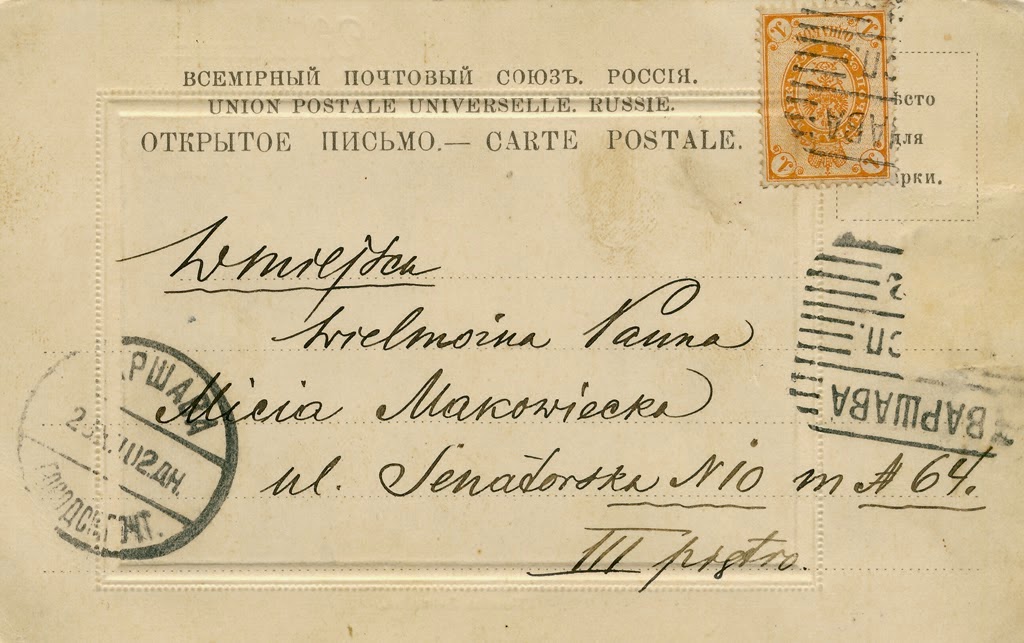 ВСЕМІРНЫЙ ПОЧТОВЫЙ СОЮЗЪ. РОССІЯ.
UNION POSTALE UNIVERSELLE. RUSSIE.
ОТКРЫТОЕ ПИСЬМО.— CARTE POSTALE.
ѣсто
для
арки.
1 1
1 1
W miejscu
Wielmożna Panna
Micia Makowiecka
ul. Senatorska N 10 m A 64.
III piętro.
ВАРШАВА
СП.
2
АРШАВА
ГОРОДСК. ПОЧТ.